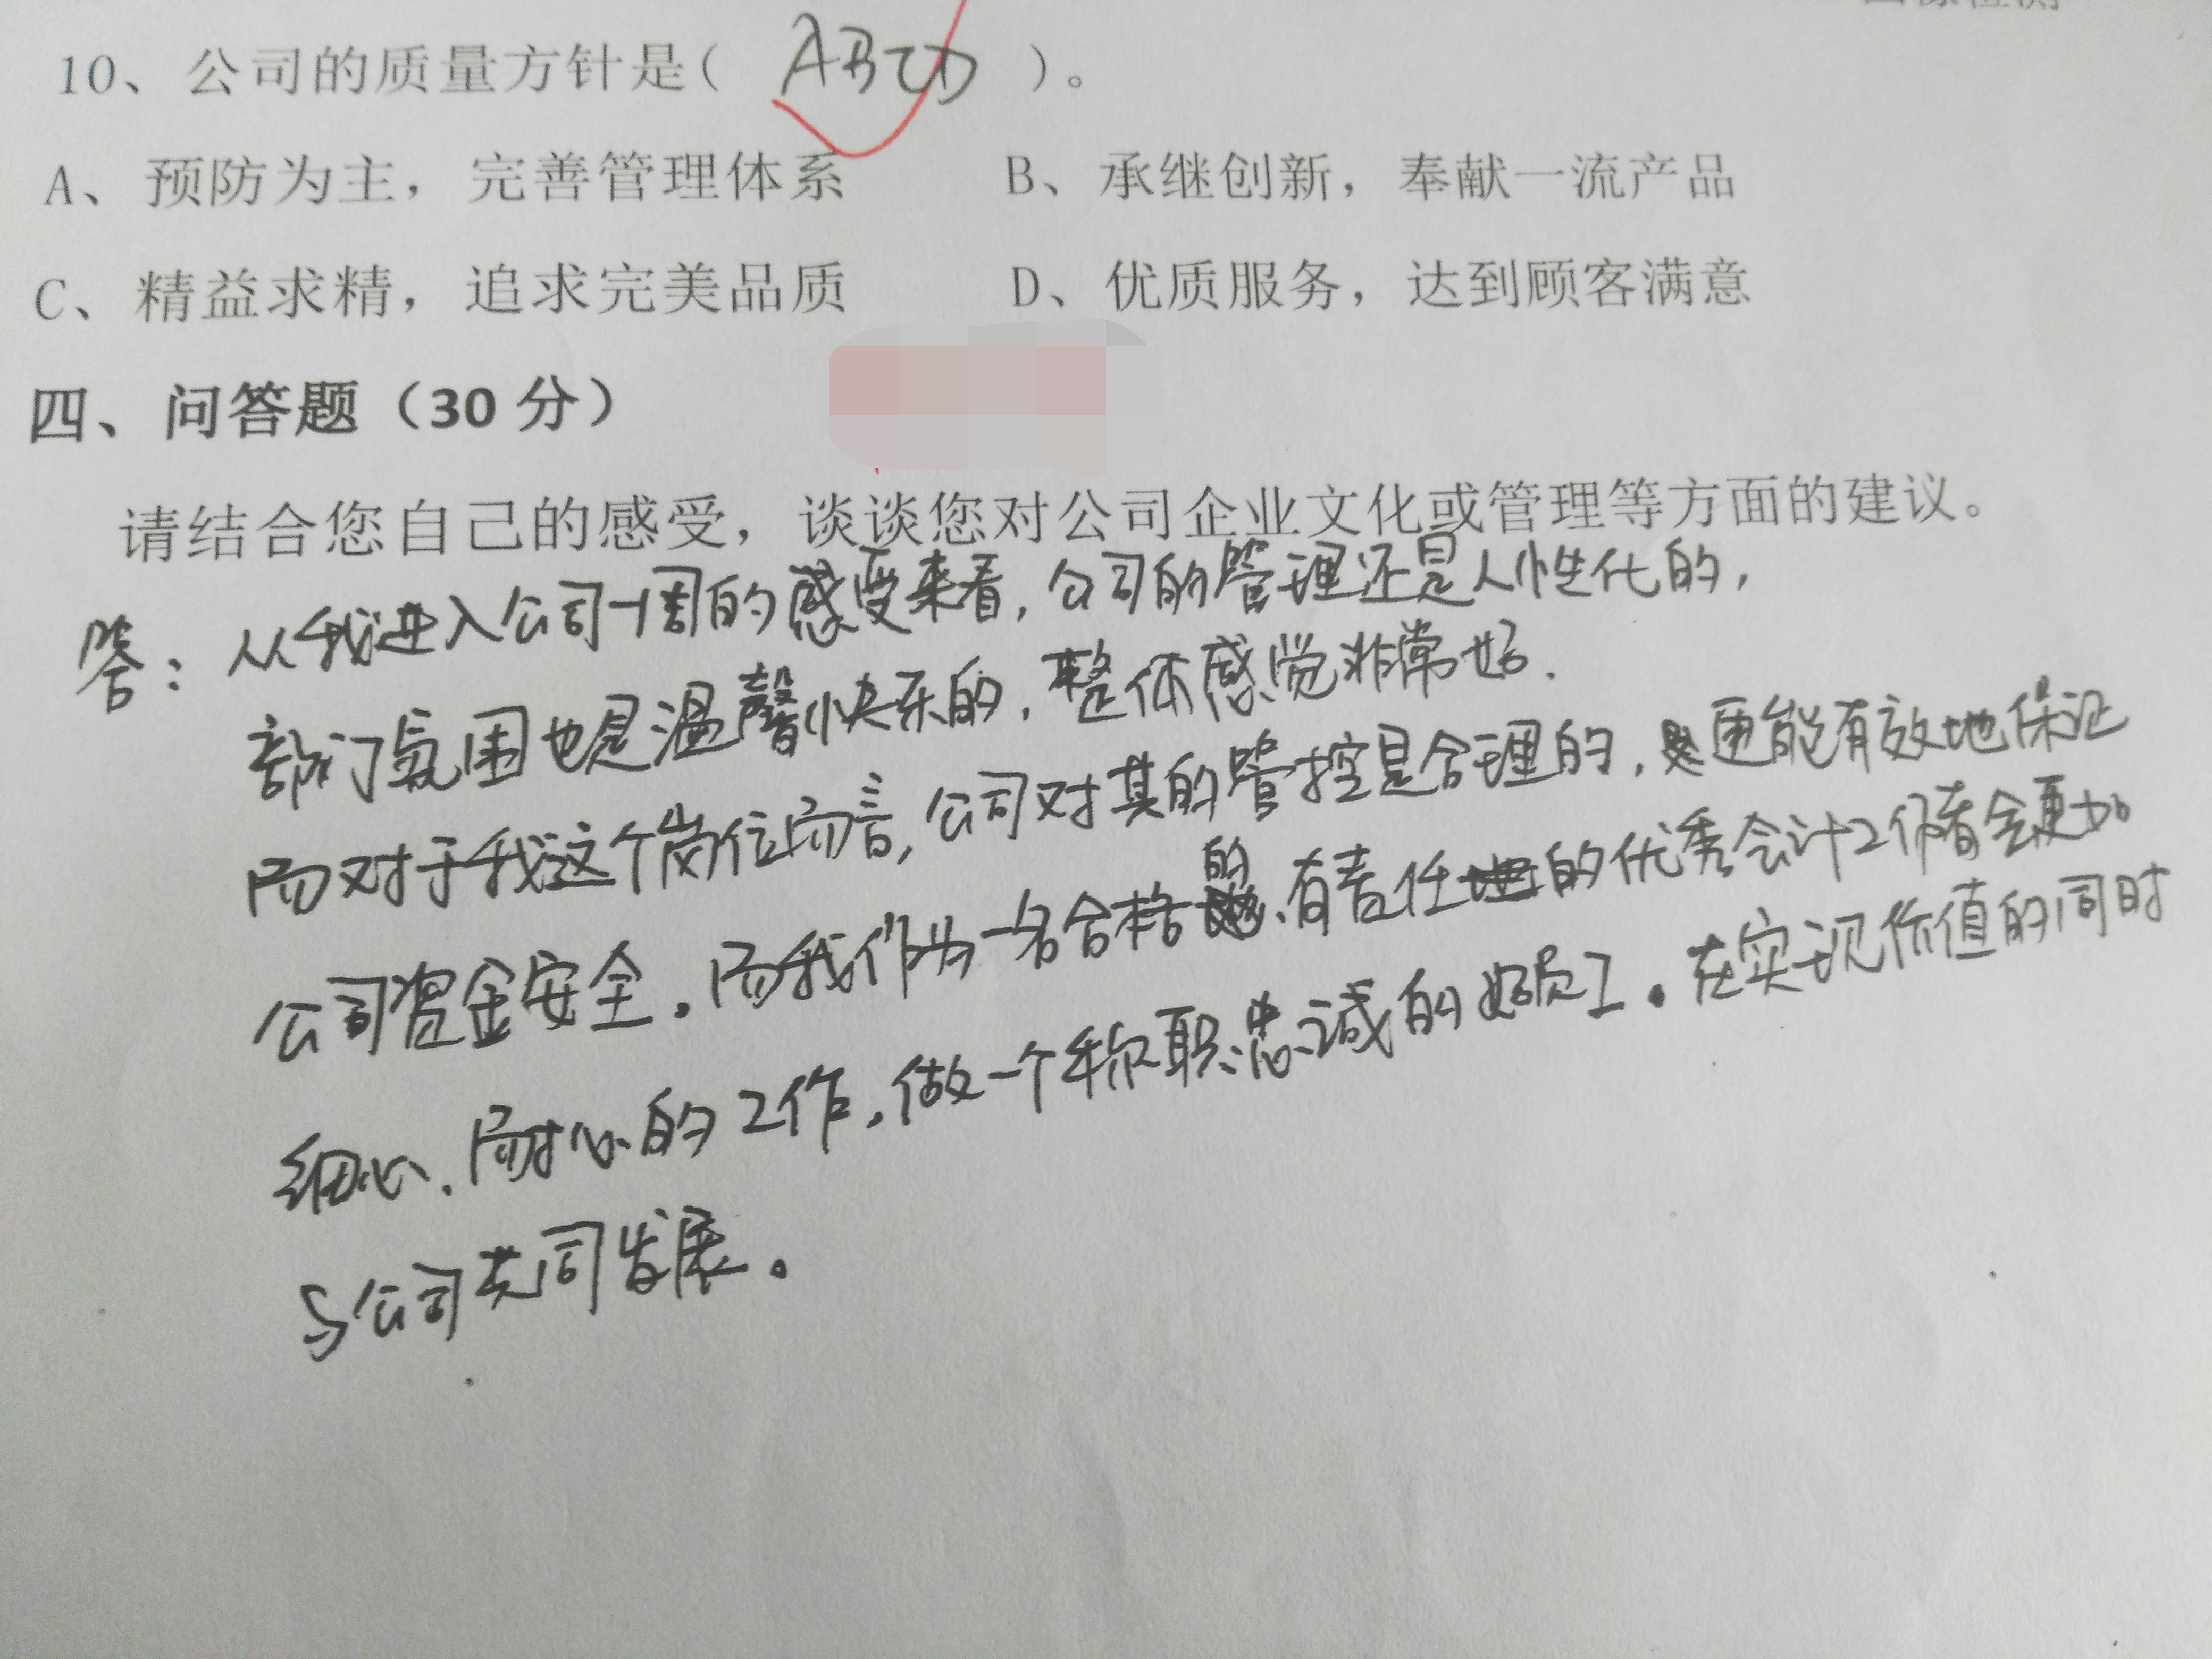 10、公司的质量方针是( ABCD )。
A、预防为主，完善管理体系 B、承继创新，奉献一流产品
C、精益求精，追求完美品质 D、优质服务，达到顾客满意
四、问答题（30 分）
请结合您自己的感受，谈谈您对公司企业文化或管理等方面的建议。
答：从我进入公司一周的感受来看，公司的管理还是人性化的，
部门氛围也是温馨快乐的，整体感觉非常好.
而对于我这个岗位而言，公司对其的管控是合理的，更能有效地保证
公司资金安全。而我作为一名合格的、有责任的优秀会计工作者会更加
细心、耐心的工作，做一个称职忠诚的好员工。在实现价值的同时
与公司共同发展。